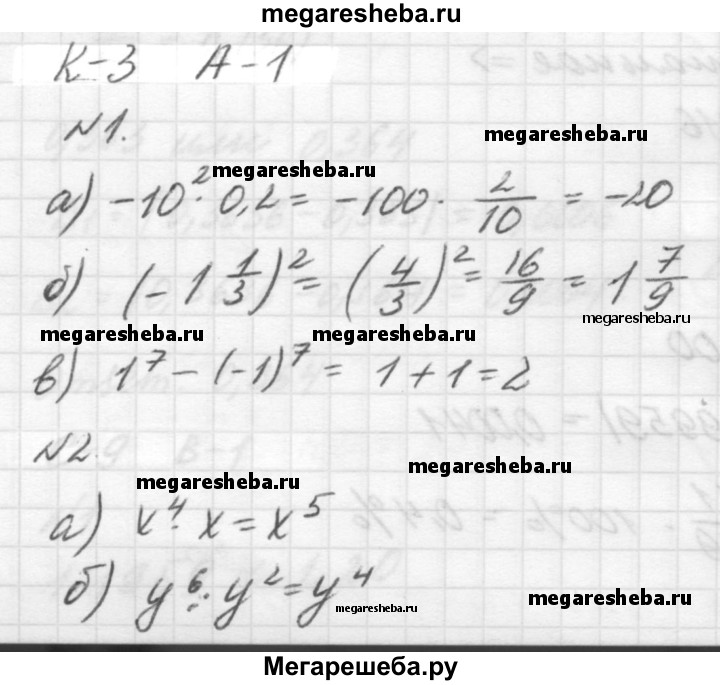 megaresheba.ru
К-3 А-1
№1.
megaresheba.ru
megaresheba.ru
а) -10²·0,2 = -100· 2/10 = -20
б) (-1 1/3)² = (4/3)² = 16/9 = 1 7/9
megaresheba.ru
megaresheba.ru
megaresheba.ru
в) 1⁷ - (-1)⁷ = 1 + 1 = 2
№2.
megaresheba.ru
megaresheba.ru
а) x⁴·x = x⁵
б) y⁶:y² = y⁴
megaresheba.ru
megaresheba.ru
Мегарешеба.ру